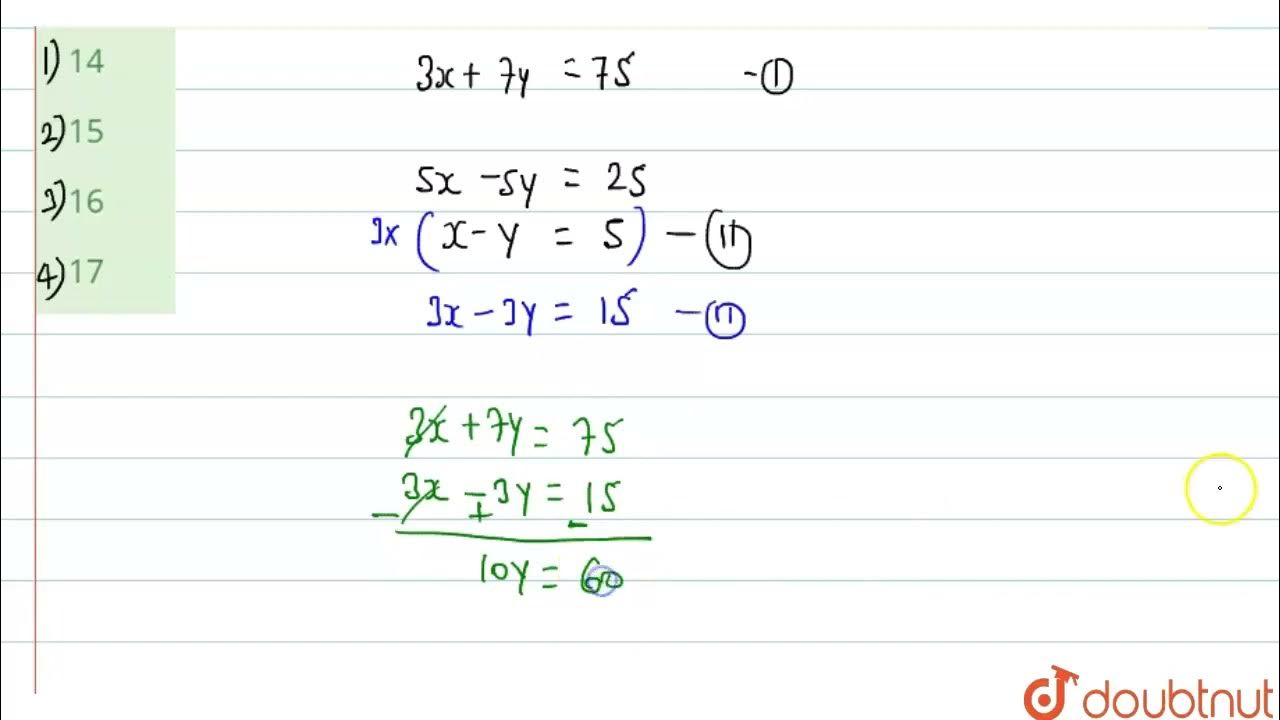 1) 14
2) 15
3) 16
4) 17
3x + 7y = 75 - ①
5x - 5y = 25
3x (x - y = 5) - ⑪
3x - 3y = 15 - ⑪
3x + 7y = 75
3x - 3y = 15
- + -
10y = 60
doubtnut